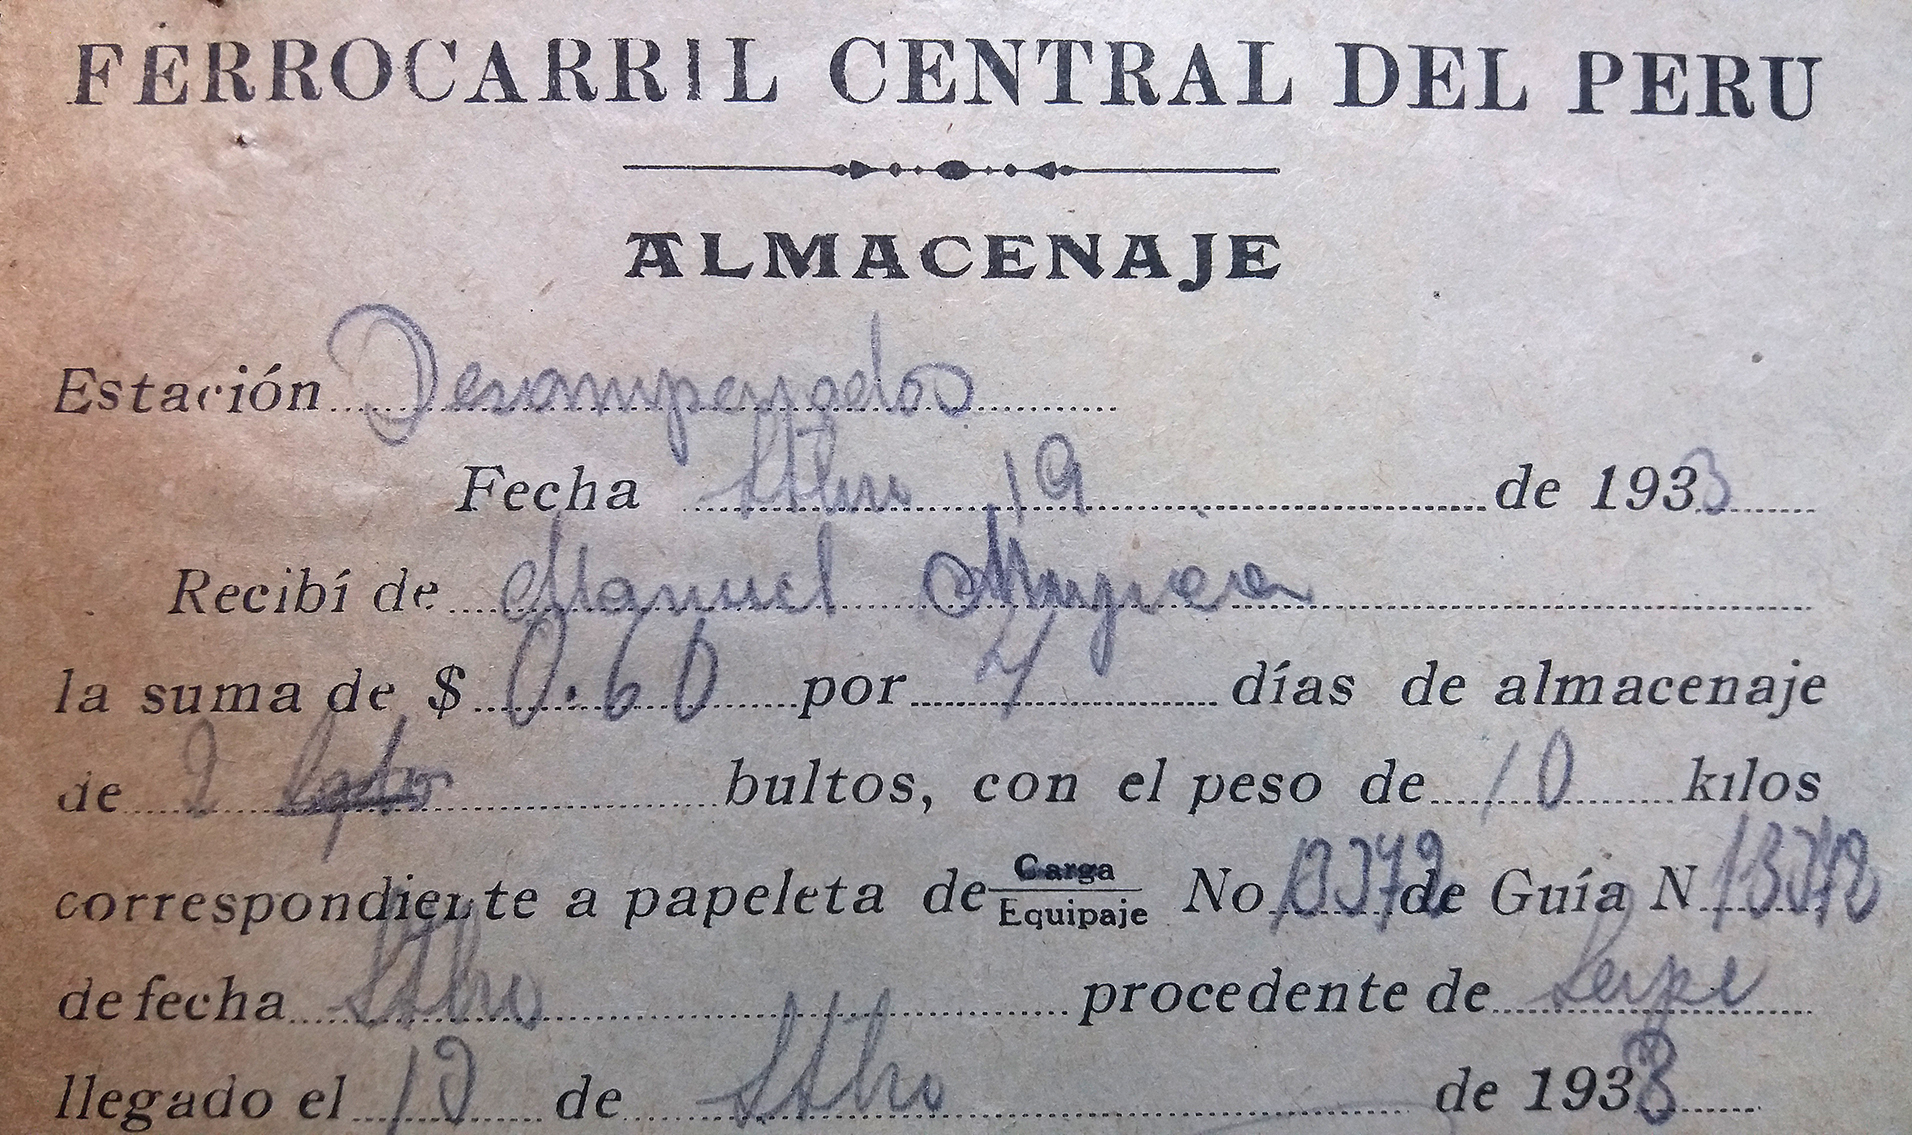 FERROCARRIL CENTRAL DEL PERU
ALMACENAJE
Estación Desamparados
Fecha Stbre 19 de 1933
Recibí de Manuel
la suma de $ 0.60 por 4 días de almacenaje
de 2 bultos, con el peso de 10 kilos
correspondiente a papeleta de Carga / Equipaje No 13372 de Guía N 13372
de fecha Stbre procedente de
llegado el de Stbre de 1933